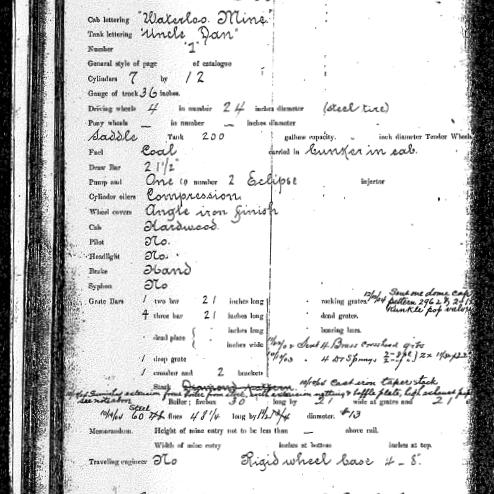 Cab lettering "Waterloo Mine"
Tank lettering "Uncle Dan"
Number "1"
General style of page of catalogue
Cylinders 7 by 12
Gauge of track 36 inches.
Driving wheels 4 in number 24 inches diameter (steel tire)
Pony wheels — in number — inches diameter
Saddle Tank 200 gallons capacity. inch diameter Tender Wheels
Fuel Coal carried in bunker in cab.
Draw Bar 21½"
Pump and One in number 2 Eclipse injector
Cylinder oilers Compression
Wheel covers Angle iron finish
Cab Hardwood
Pilot No.
Headlight No.
Brake Hand
Syphon No
Grate Bars 1 two bar 21 inches long rocking grates.
4 three bar 21 inches long dead grates.
dead plate inches long bearing bars.
inches wide Sent 4 Brass crosshead gibs
1 drop grate 4 Dr Springs
1 crossbar and 2 brackets
Stack Diamond pattern Cast iron taper stack
Boiler; Inches 30 long by 21 wide at grates and 21
Steel 60 flues 48¼ long by diameter. #13
Memorandum. Height of mine entry not to be less than — above rail.
Width of mine entry inches at bottom inches at top.
Traveling engineer No Rigid wheel base 4-8.